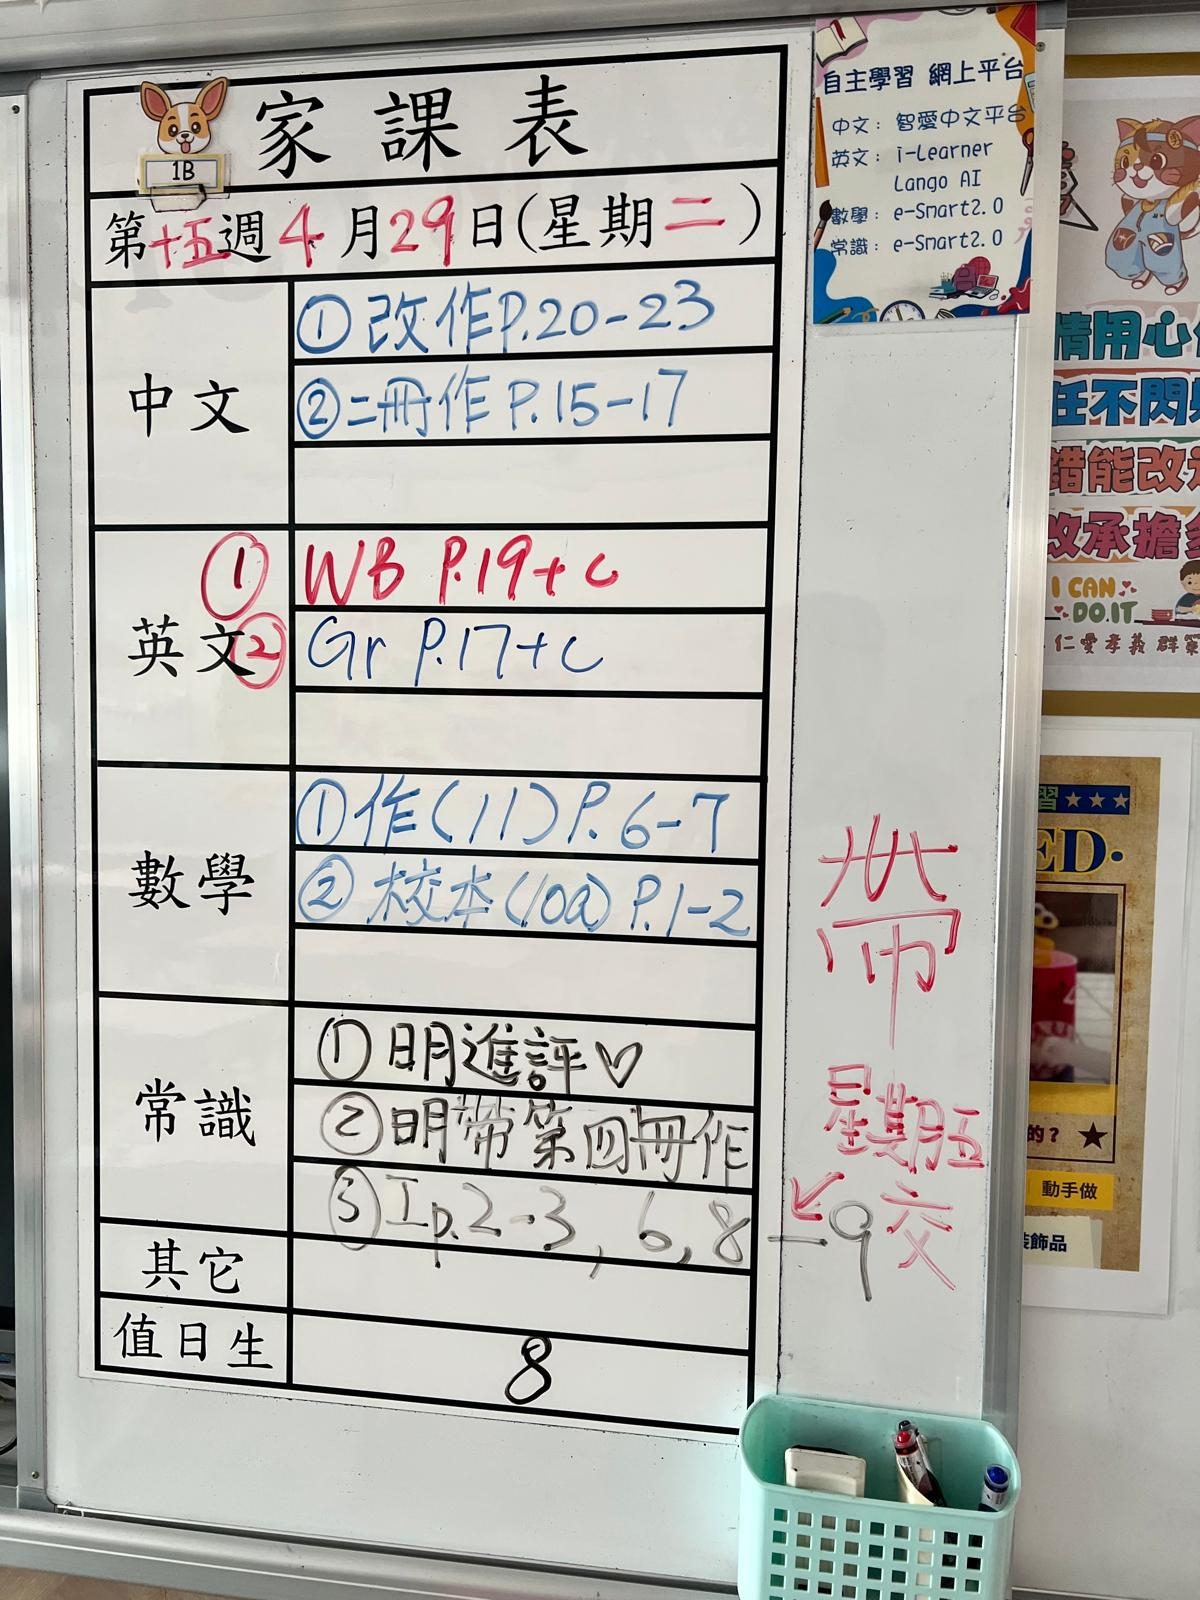 家課表
1B
第十五週4月29日(星期二)
中文
①改作P.20-23
②二冊作P.15-17
英文
① WB P.19+c
② Gr P.17+c
數學
①作(11)P.6-7
②校本(10a)P.1-2
常識
①明進評♡
②明帶第四冊作
③工p.2-3, 6, 8-9
其它
值日生
8
帶
星期五
交
自主學習 網上平台
中文: 智愛中文平台
英文: i-Learner
Lango AI
數學: e-Smart2.0
常識: e-Smart2.0
情用心
任不閃
錯能改
改承擔
I CAN
DO.IT
仁愛孝義 群
習★★★
ED·
的? ★
動手做
裝飾品